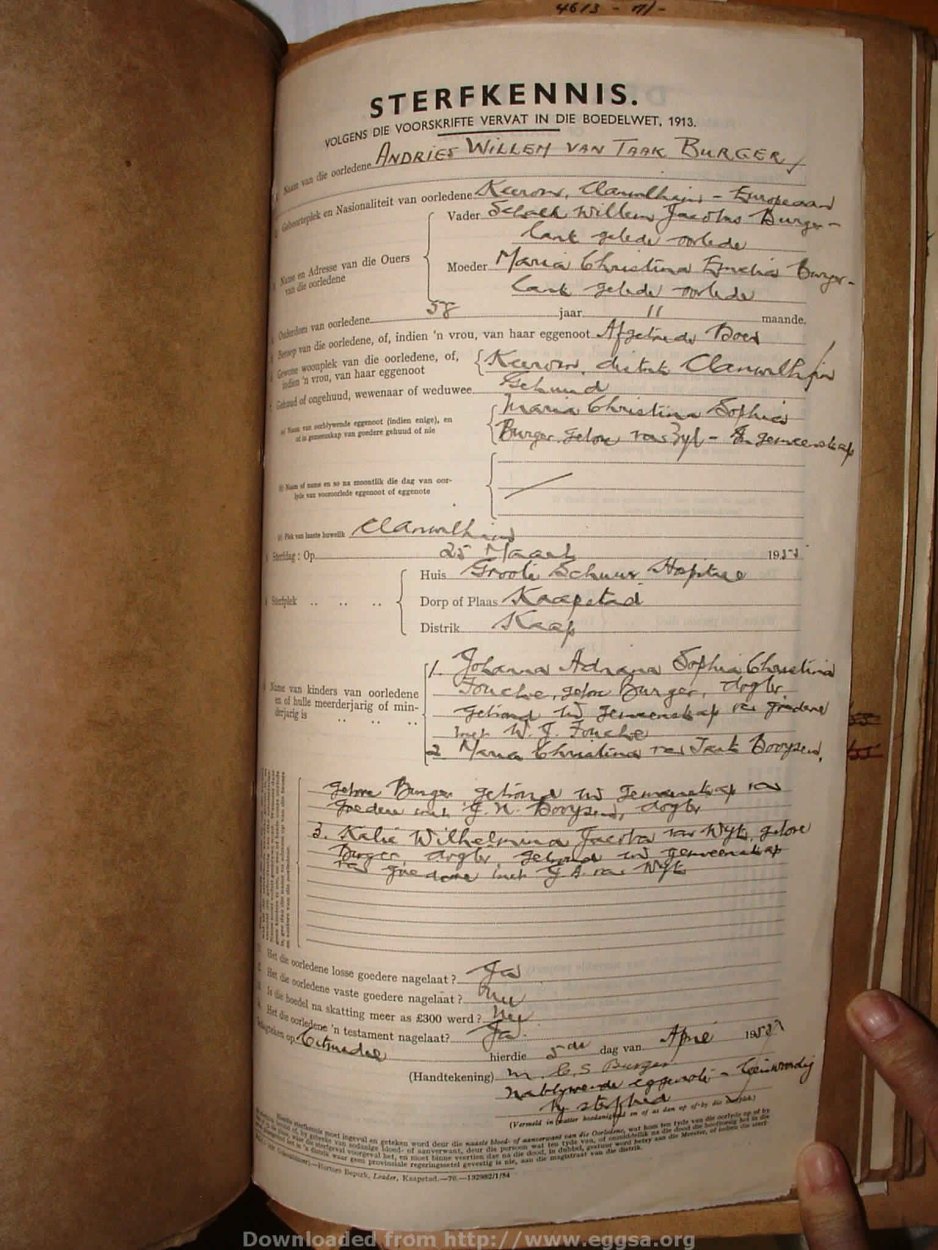 4613 - 71-
STERFKENNIS.
VOLGENS DIE VOORSKRIFTE VERVAT IN DIE BOEDELWET, 1913.
Naam van die oorledene ANDRIES WILLEM VAN TAAK BURGER
Geboorteplek en Nasionaliteit van oorledene Keerom, Clanwilliam - Europeaan
Vader Schalk Willem Jacobus Burger -
lank gelede oorlede
Name en Adresse van die Ouers van die oorledene
Moeder Maria Christina Burger -
lank gelede oorlede
Ouderdom van oorledene 58 jaar 11 maande.
Beroep van die oorledene, of, indien 'n vrou, van haar eggenoot Afgetrede Boer
Gewone woonplek van die oorledene, of, indien 'n vrou, van haar eggenoot Keerom, distrik Clanwilliam
Gehuud of ongehuud, wewenaar of weduwee Gehuud
(a) Naam van oorblywende eggenoot (indien enige), en of in gemeenskap van goedere gehuud of nie
Maria Christina Sophia
Burger, gebore van Zyl - In gemeenskap
(b) Naam of name en so na moontlik die dag van oorlyde van vooroorlede eggenoot of eggenote
(c) Plek van laaste huwelik Clanwilliam
Sterfdag: Op 25 Maart 195
Huis Groote Schuur Hospitaal
Sterfplek Dorp of Plaas Kaapstad
Distrik Kaap
Name van kinders van oorledene en of hulle meerderjarig of minderjarig is
1. Johanna Adriana Sophia Christina
Fouche, gebore Burger, dogter
getroud in gemeenskap van goedere
met W. J. Fouche
2. Maria Christina van Taak Booysen,
gebore Burger getroud in gemeenskap van
goedere met J. N. Booysen, dogter
3. Wilhelmina Jacoba van Wyk, gebore
Burger, dogter, getroud in gemeenskap
van goedere met van Wyk
Het die oorledene losse goedere nagelaat? Ja
Het die oorledene vaste goedere nagelaat? Nee
Is die boedel na skatting meer as £300 werd? Nee
Het die oorledene 'n testament nagelaat? Ja.
Getekenen op Citrusdal hierdie 5de dag van April 195
(Handtekening) M. C. S. Burger
Nablywende eggenote - teenwoordig
by sterfbed
Downloaded from http://www.eggsa.org